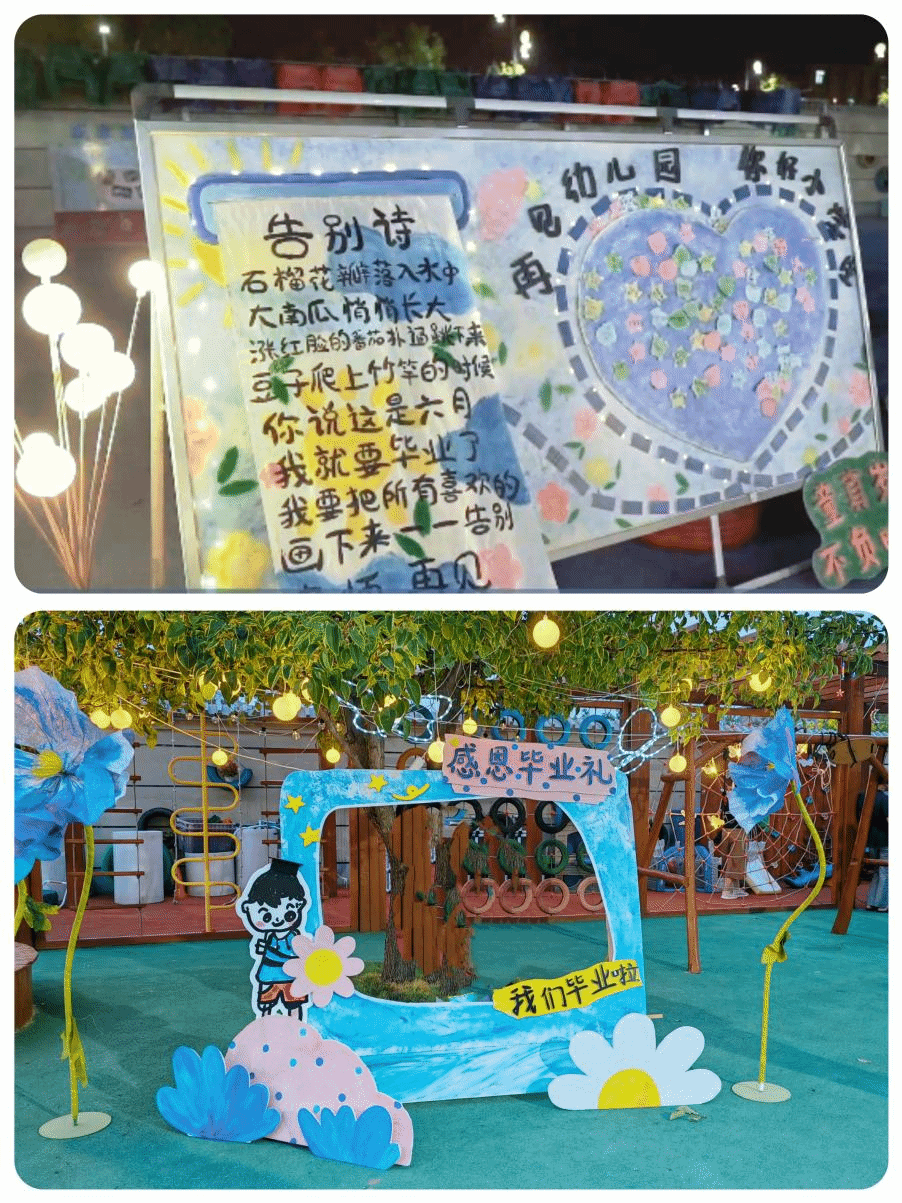 告别诗
石榴花瓣落入水中
大南瓜悄悄长大
涨红脸的番茄扑通跳下来
豆子爬上竹竿的时候
你说这是六月
我就要毕业了
我要把所有喜欢的
画下来一一告别
再见
再见幼儿园
你好
不负
感恩毕业礼
我们毕业啦